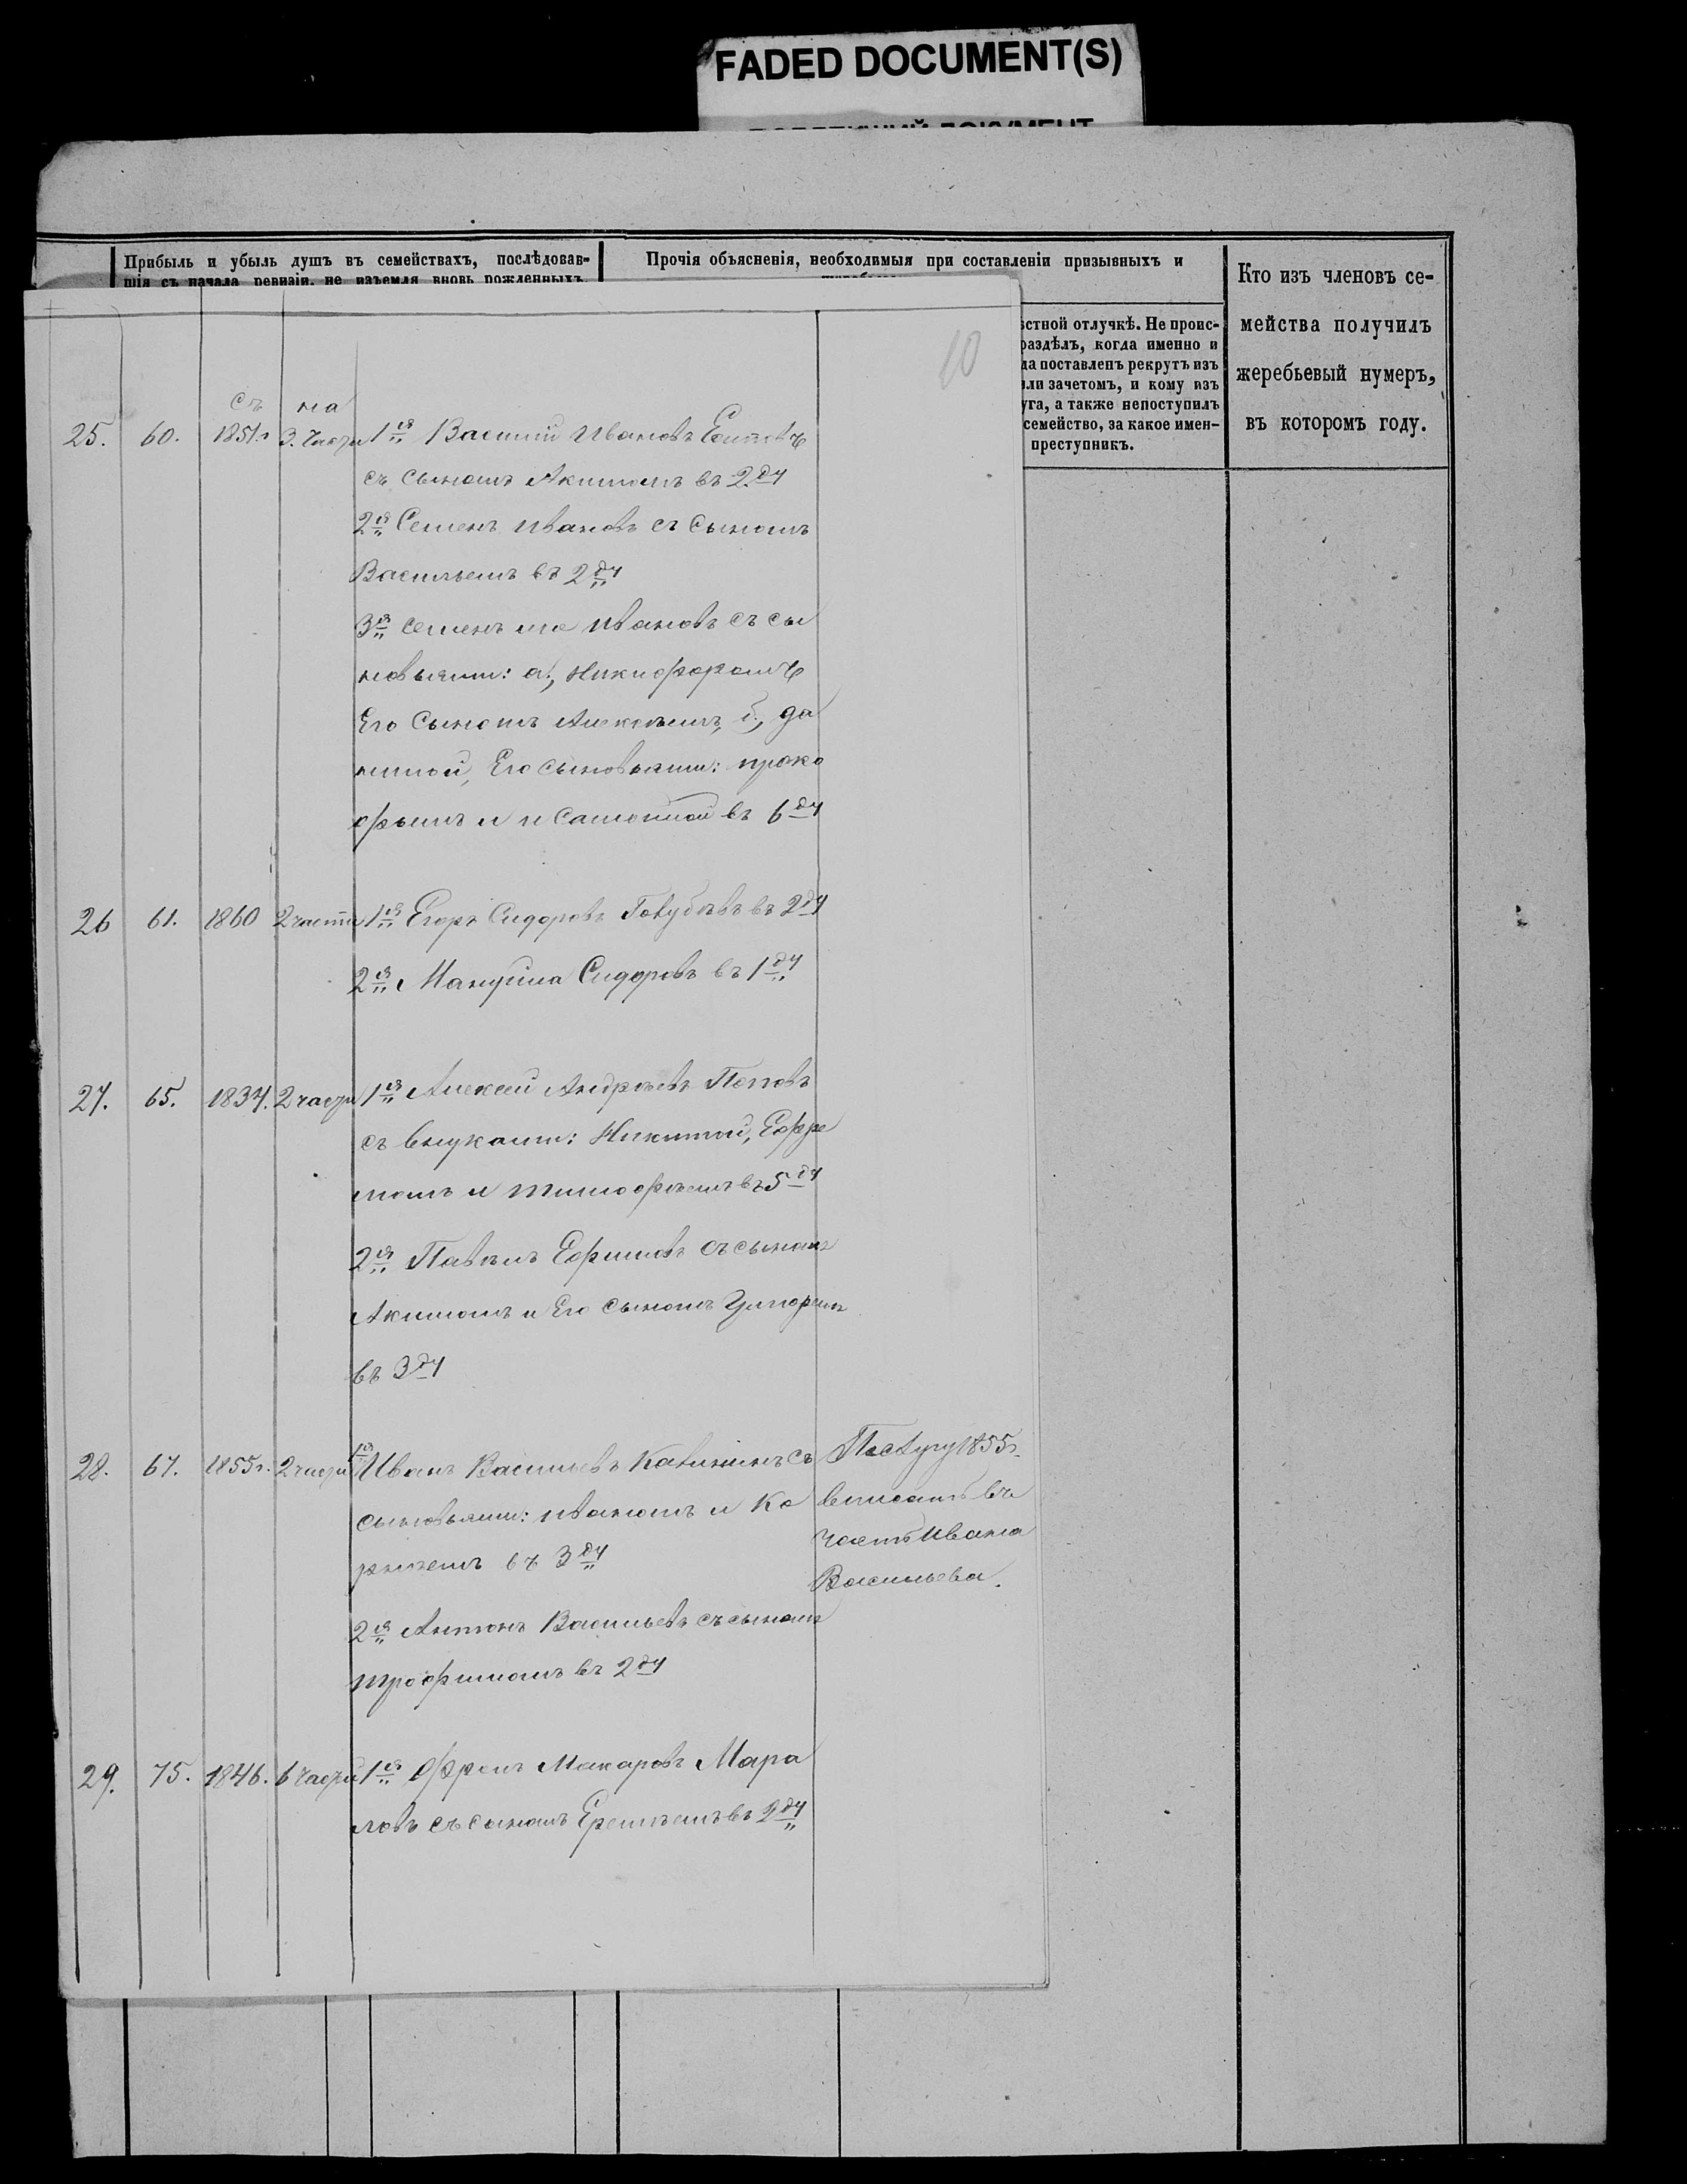 FADED DOCUMENT(S)
Прибыль и убыль душъ въ семействахъ, послѣдовав-
шія съ начала ревизіи, не изъемля вновь рожденныхъ.
Прочія объясненія, необходимыя при составленіи призывныхъ и
стной отлучкѣ. Не проис-
раздѣлъ, когда именно и
да поставленъ рекрутъ изъ
или зачетомъ, и кому изъ
уга, а также непоступилъ
семейство, за какое имен-
преступникъ.
Кто изъ членовъ се-
мейства получилъ
жеребьевый нумеръ,
въ которомъ году.
10
съ на
25. 60. 1851 г 3. части 1я Василий Ивановъ
съ сыномъ Акимомъ въ 2 ду
2я Семенъ Ивановъ съ сыномъ
Васильемъ въ 2 ду
3я Семенъ же Ивановъ съ сы
новьями: а, Никифоромъ
Его сыномъ Алексѣемъ, б, да
нилой, Его сыновьями: проко
фьемъ и и Самойлой въ 6 ду
26 61. 1860 2 части 1я Егоръ Сидоровъ Голубевъ въ 2 ду
2я Мануйла Сидоровъ въ 1 ду
27. 65. 1837. 2 части 1я Алексей Андреевъ Поповъ
съ внуками: Никитой, Ефре
момъ и тимофеемъ въ 5 ду
2я Павелъ Ефимовъ съ сыномъ
Акимомъ и Его сыномъ Григорьемъ
въ 3 ду
28. 67. 1855 г. 2 части 1я Иванъ Васильевъ Калининъ съ
сыновьями: иваномъ и Ко
рнѣемъ въ 3 ду
2я Антонъ Васильевъ съ сыномъ
трофимомъ въ 2 ду
1855 г.
въ
часть Ивана
Васильева.
29. 75. 1846. 6 частей 1я Ефремъ Макаровъ Мара
ловъ съ сыномъ Еремѣемъ въ 2 ду